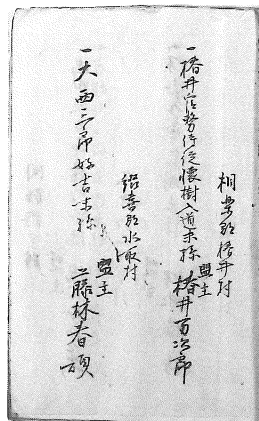 相楽郡椿井村
一椿井官務侍従懐樹入道末孫
盟主
椿井万次郎
綴喜郡水取村
一大西三郎好吉末孫
盟主
藤林春碩